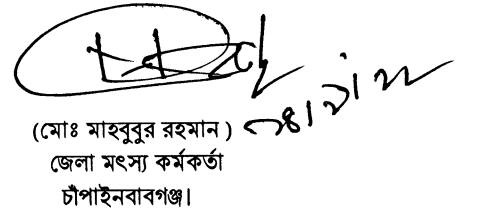 (মোঃ মাহবুবুর রহমান )
জেলা মৎস্য কর্মকর্তা
চাঁপাইনবাবগঞ্জ।